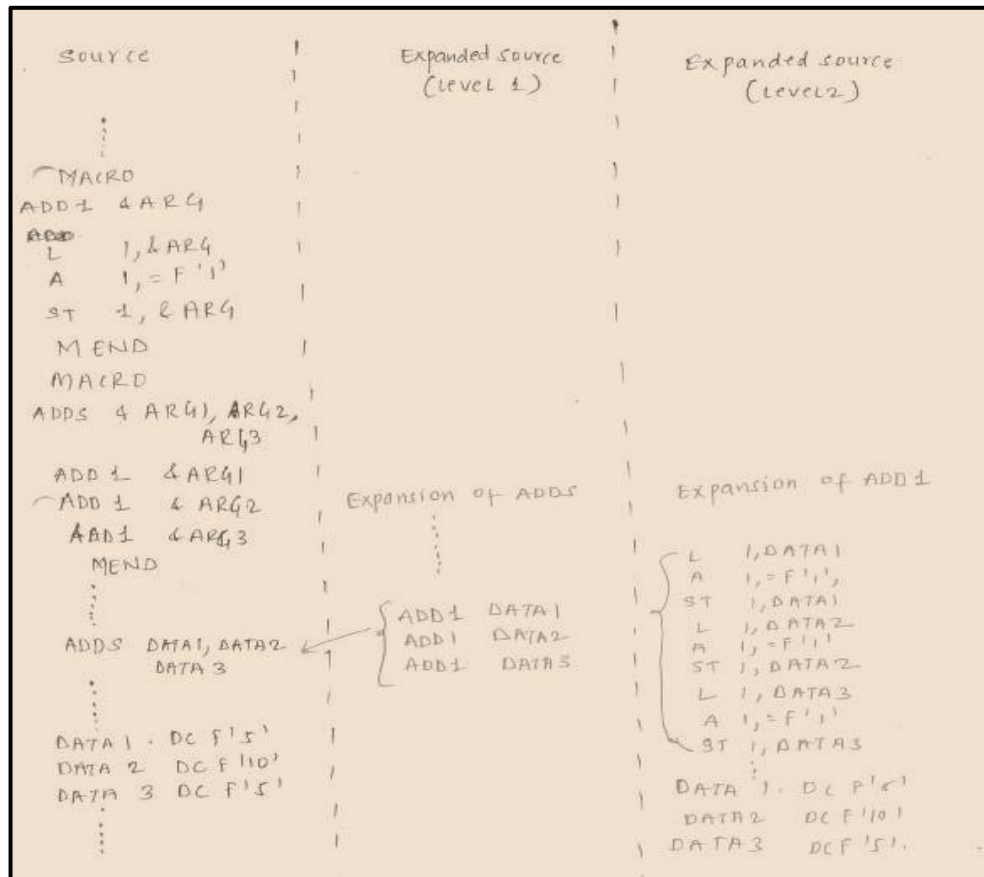 Source
MACRO
ADD1 & ARG
L 1, & ARG
A 1, = F '1'
ST 1, & ARG
MEND
MACRO
ADDS & ARG1, ARG2,
ARG3
ADD1 & ARG1
ADD1 & ARG2
ADD1 & ARG3
MEND
ADDS DATA1, DATA2
DATA3
DATA1. DC F'5'
DATA 2 DC F'10'
DATA 3 DC F'5'
Expanded source
(Level 1)
Expansion of ADDS
ADD1 DATA1
ADD1 DATA2
ADD1 DATA3
Expanded source
(Level2)
Expansion of ADD1
L 1, DATA1
A 1, = F '1',
ST 1, DATA1
L 1, DATA2
A 1, = F '1'
ST 1, DATA2
L 1, DATA3
A 1, = F '1'
ST 1, DATA3
DATA 1. DC F'5'
DATA2 DC F'10'
DATA3 DC F'5'.